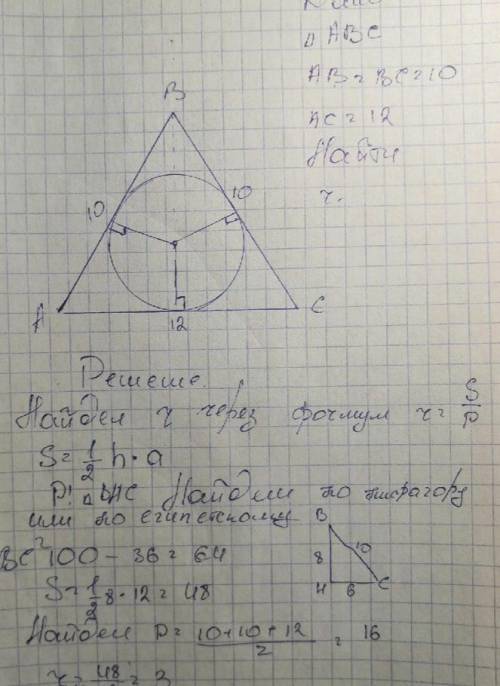 △ ABC
AB = BC = 10
AC = 12
Найти
r.
B
10
10
A
12
C
Решение.
Найдем r через формул r = S/p
S = 1/2 h · a
Найдем по пифагору
или по египетскому
B
8
10
H
6
C
BC² 100 - 36 = 64
S = 1/2 8 · 12 = 48
Найдем p = (10 + 10 + 12)/2 = 16